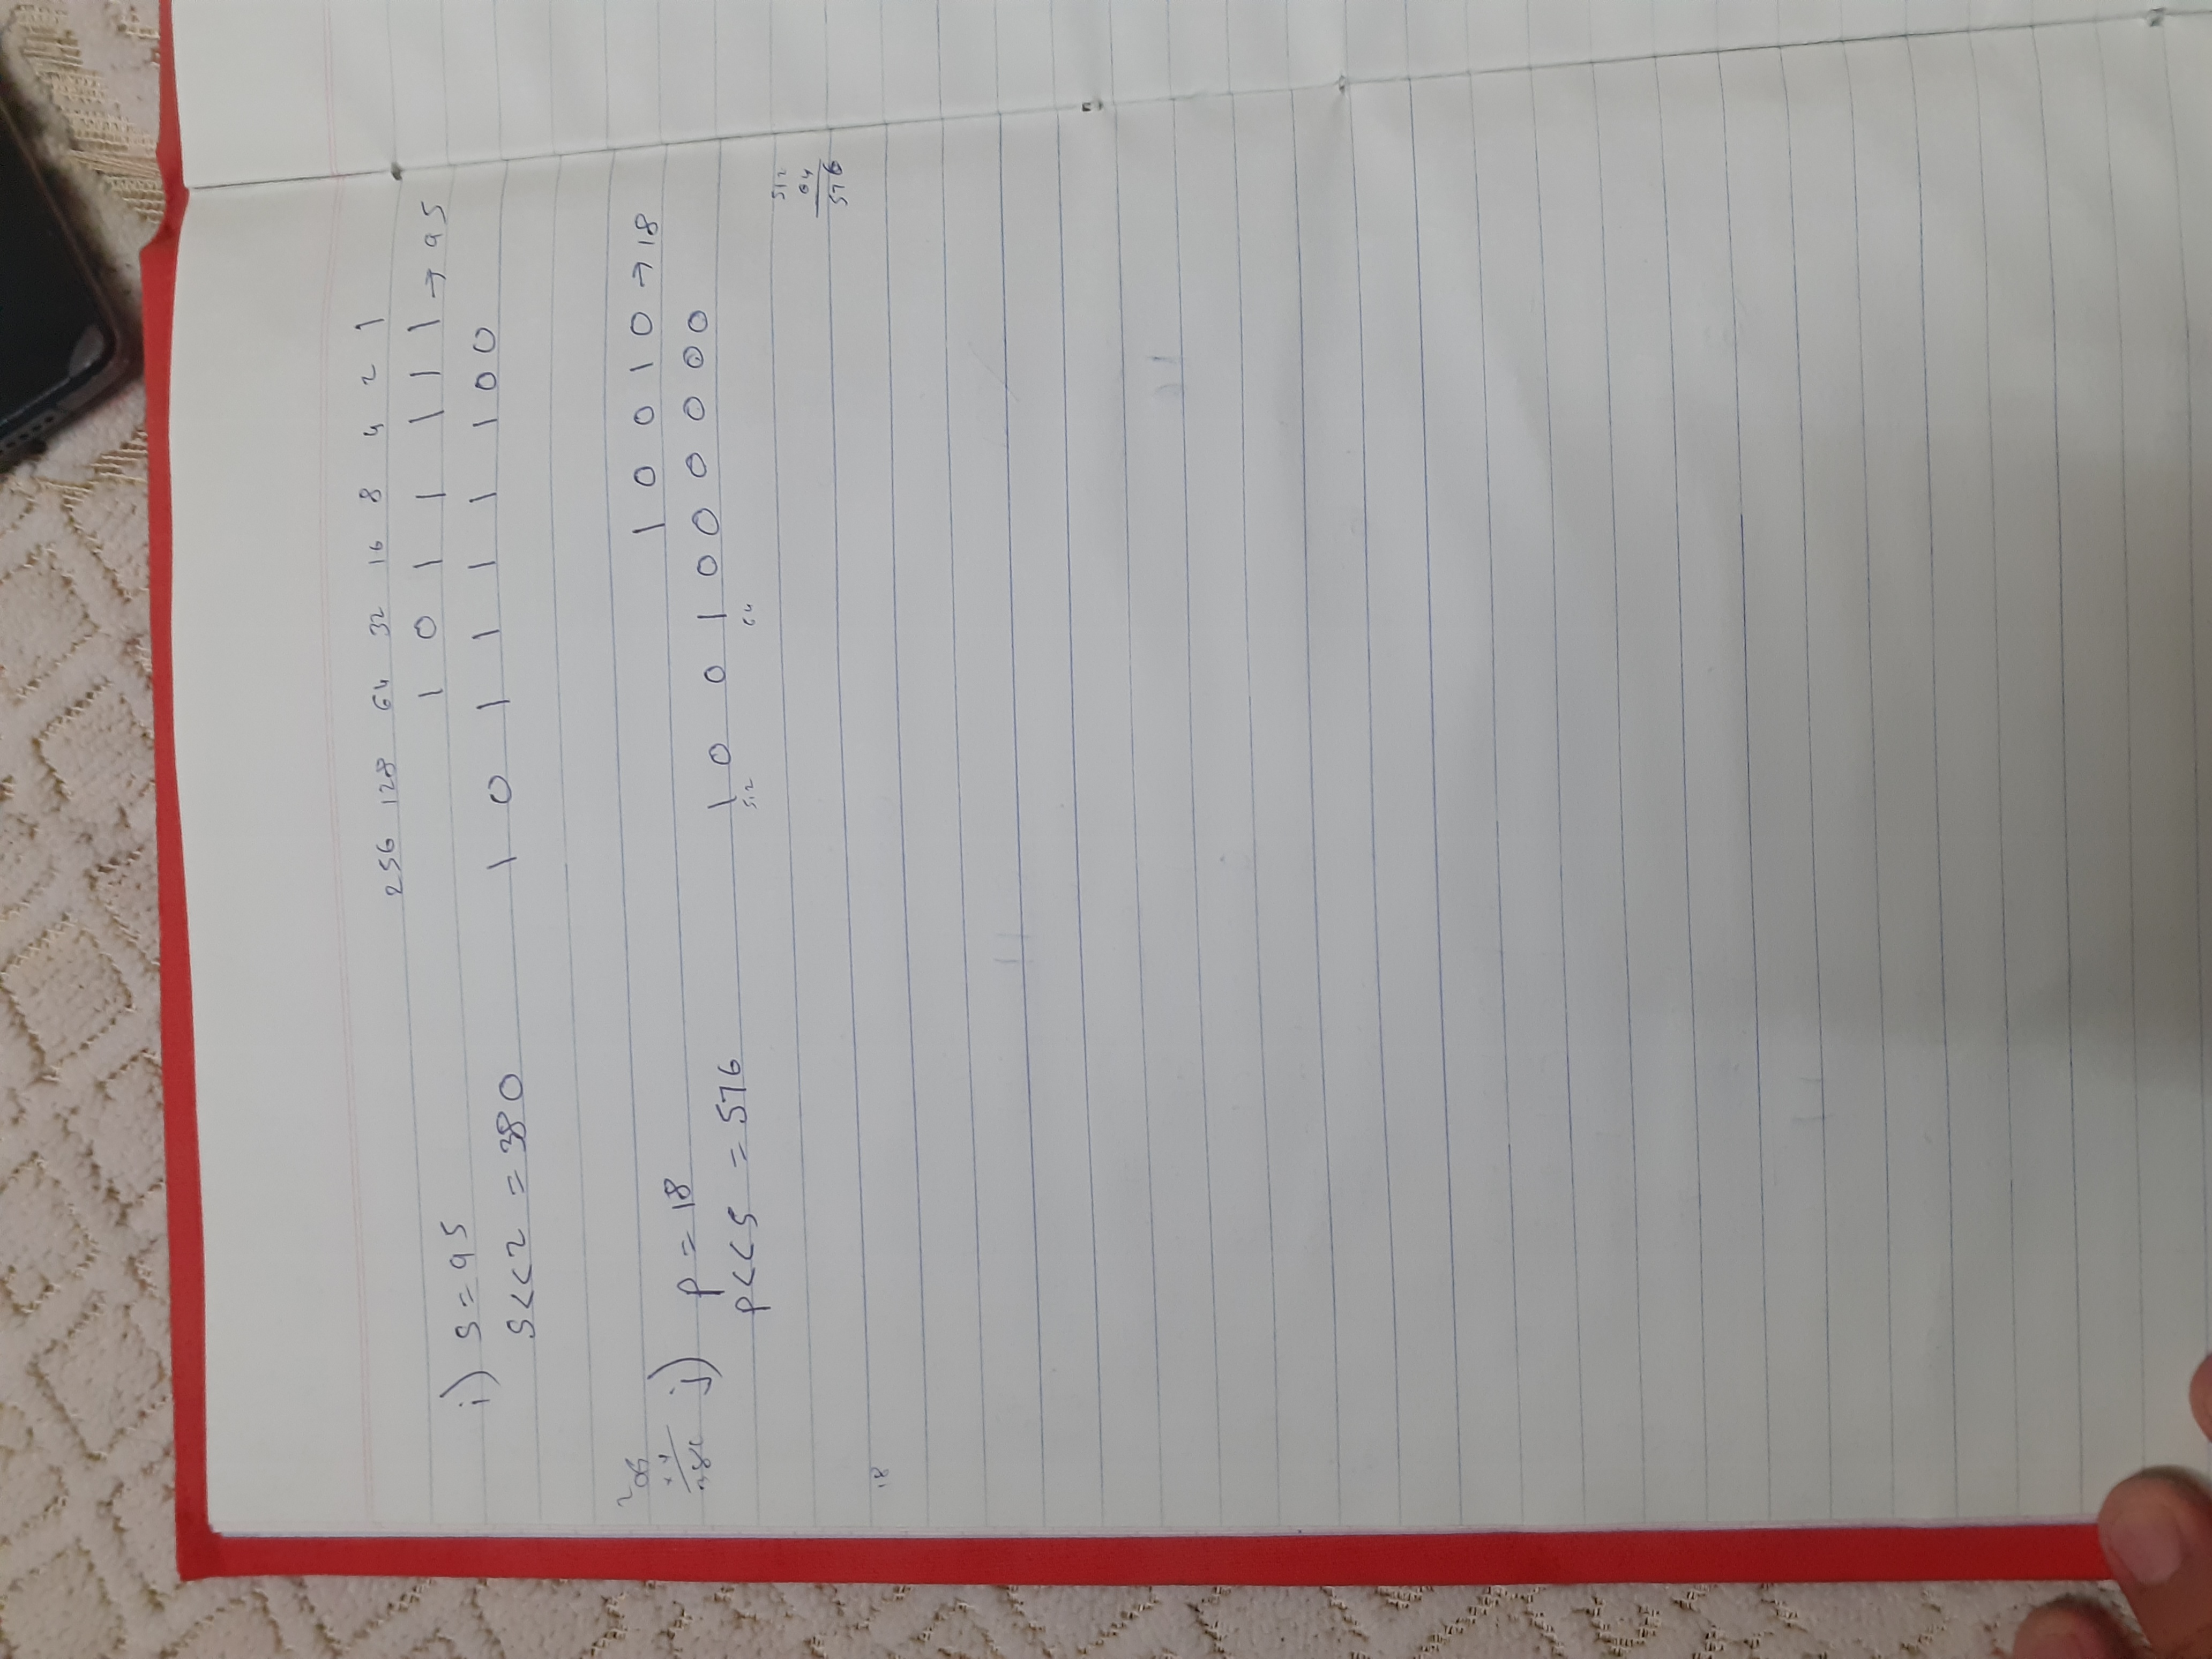 256 128 64 32 16 8 4 2 1
i) S = 95 1 0 1 1 1 1 1 → 95
S<<2 = 380 1 0 1 1 1 1 1 0 0
j) P = 18 1 0 0 1 0 → 18
P<<5 = 576 1 0 0 1 0 0 0 0 0 0
512 64
512
64
576
18